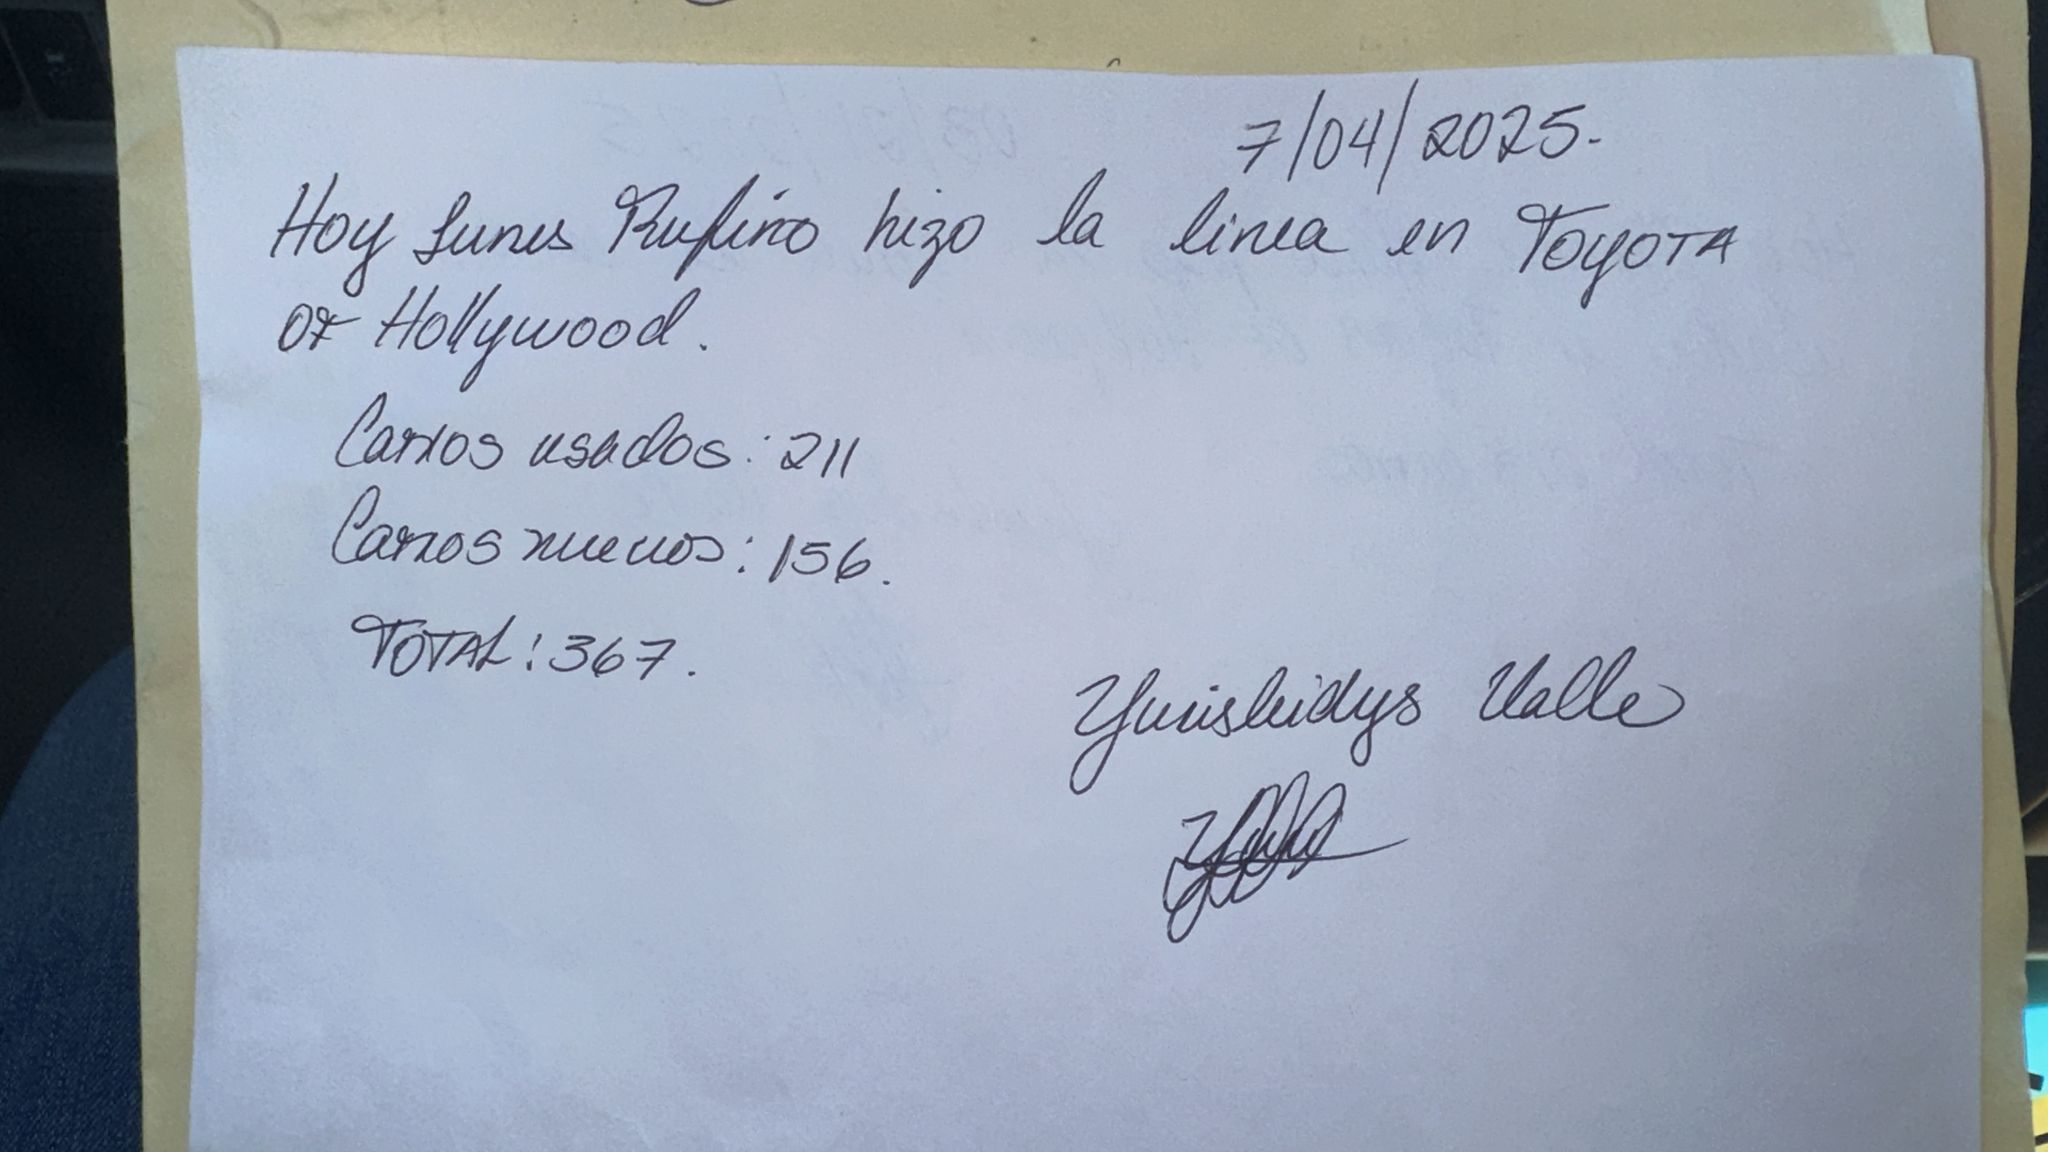 7/04/2025.
Hoy Lunes Rufino hizo la linea en TOYOTA
OF Hollywood.
Carros usados: 211
Carros nuevos: 156.
TOTAL: 367.
Yurisleidys Valle